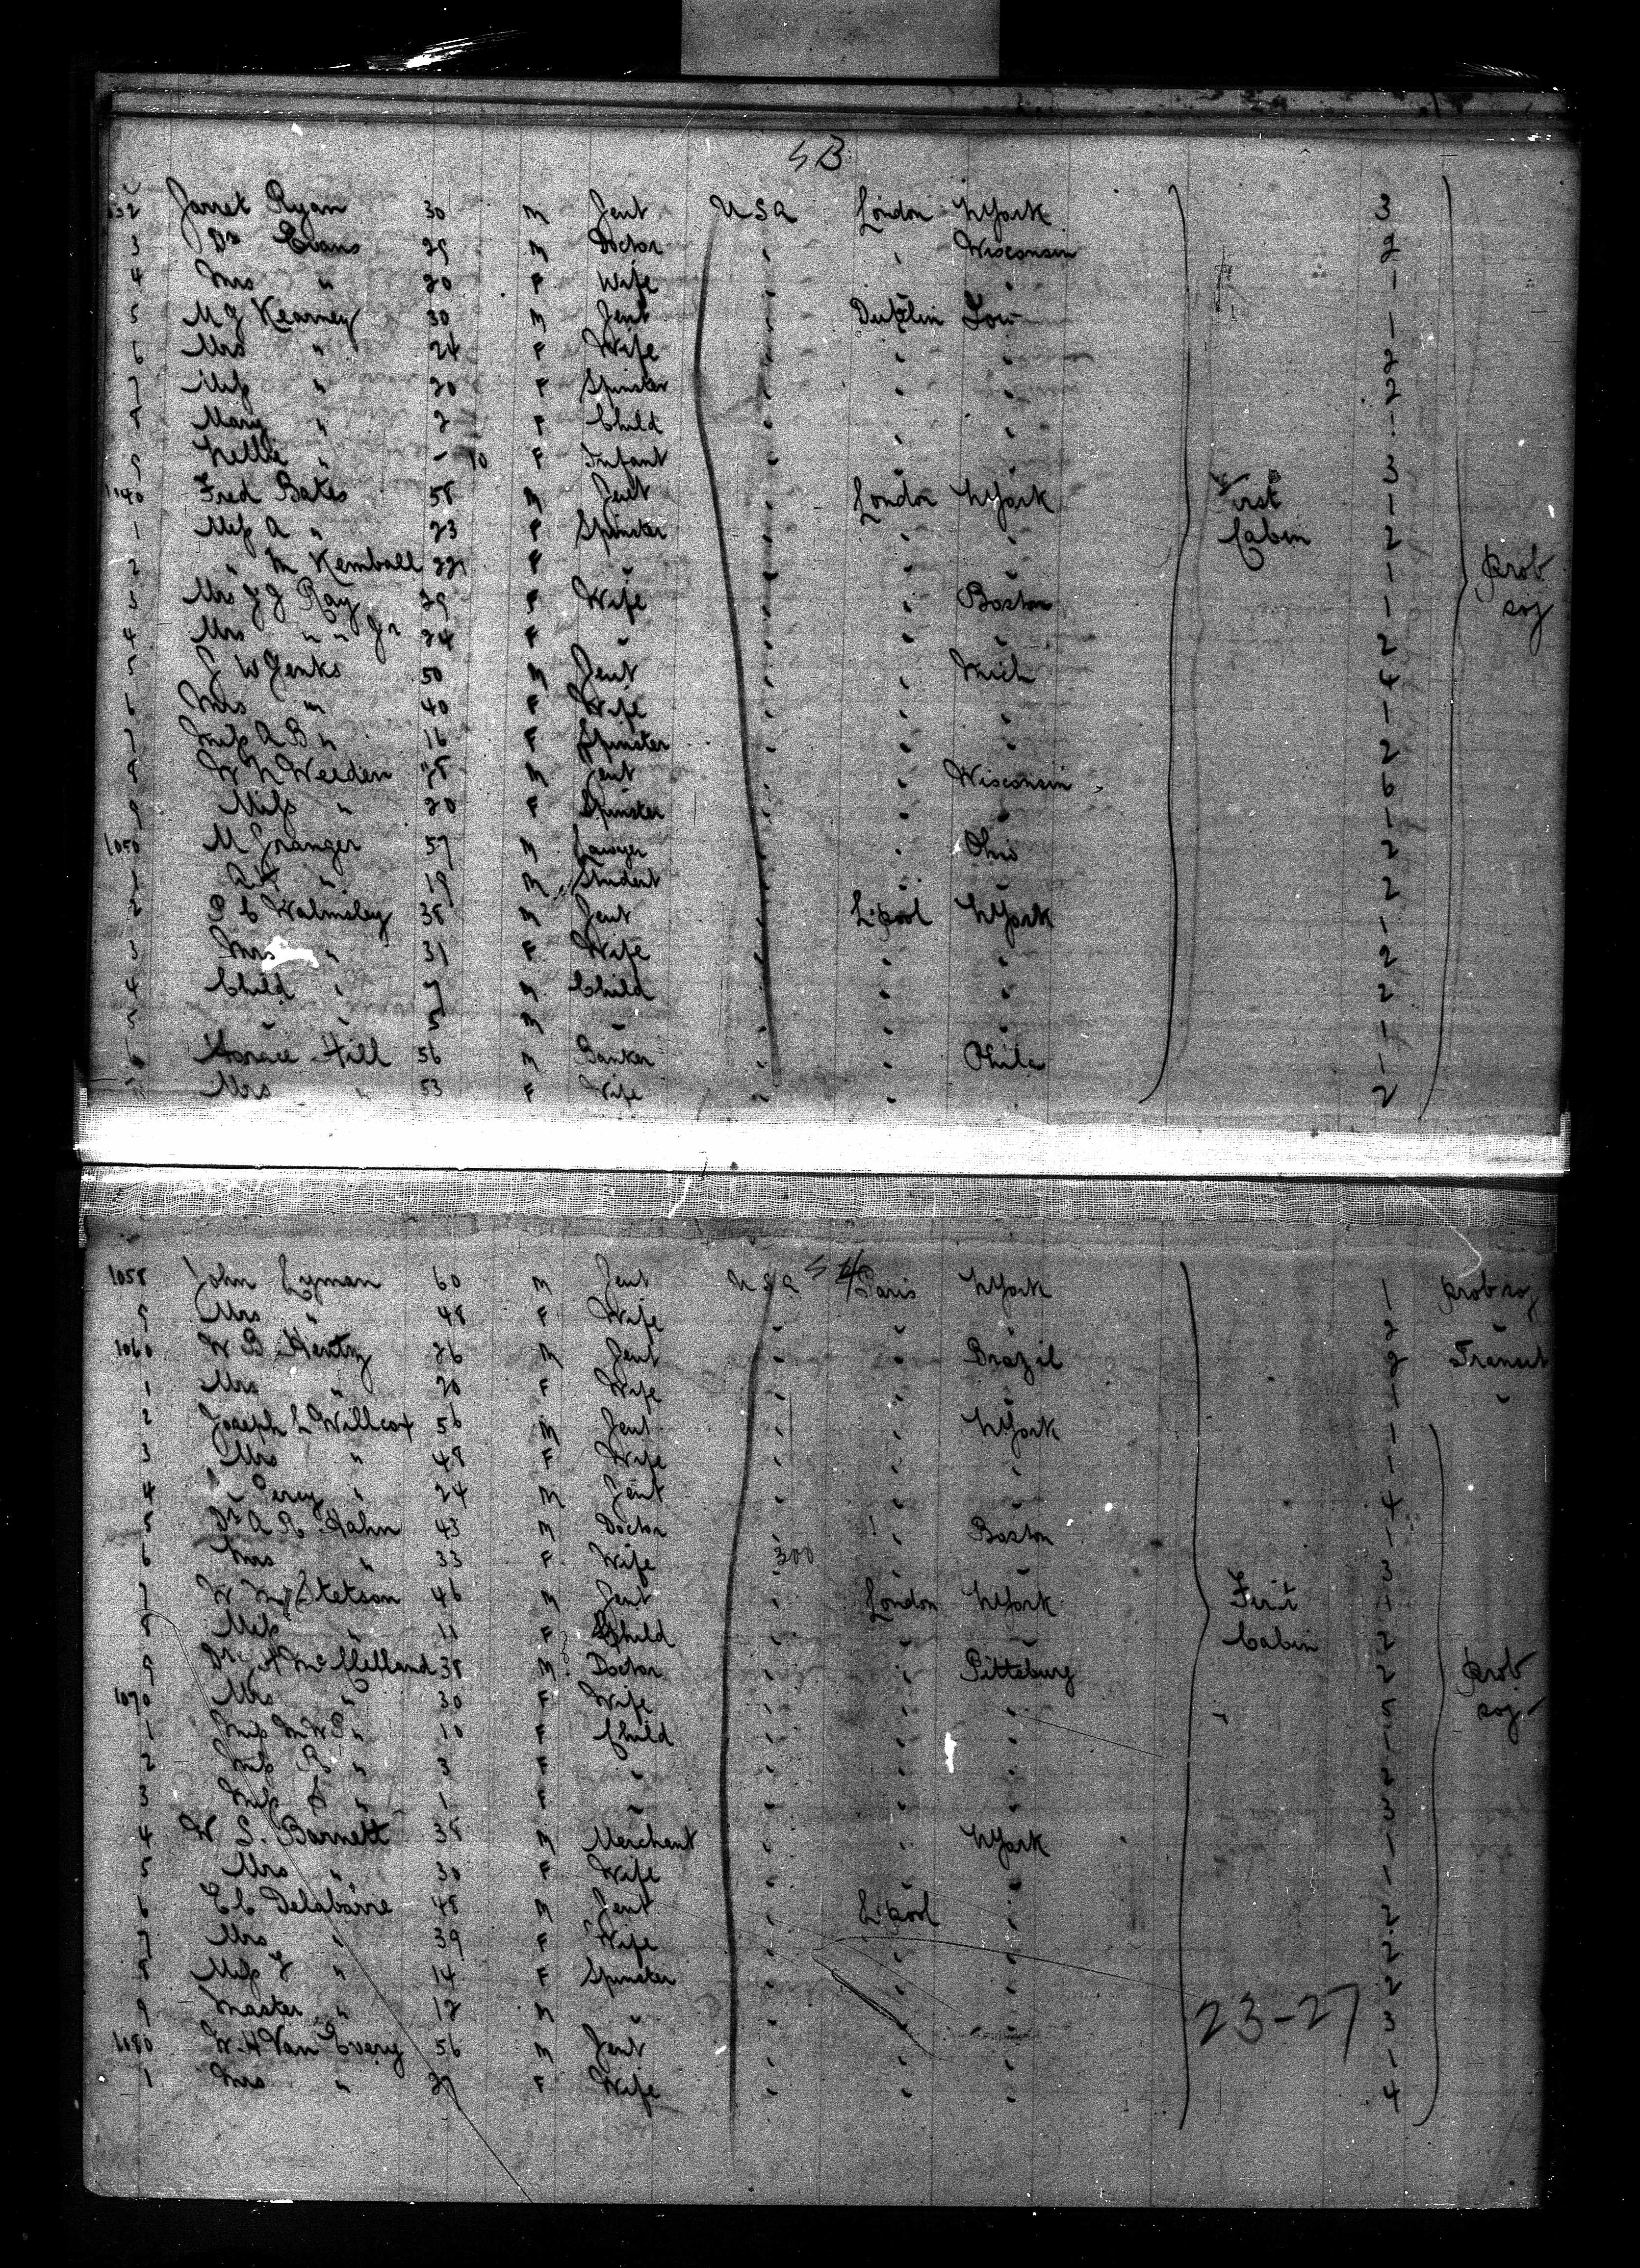 SB
32 Jarret Ryan 30 M Gent USA London NYork 3
3 Dr Evans 29 M Doctor " " Wisconsin 2
4 Mrs " 20 F Wife " " " 1
5 M J Kearney 30 M Gent " Dublin Iow 1
6 Mrs " 24 F Wife " " " 2
7 Miss " 20 F Spinster " " " 2
8 Mary " 2 F Child " " " 1
9 Nellie " - 10 F Infant " " " 3
1040 Fred Bates 58 M Gent " London NYork First 1
1 Miss A " 23 F Spinster " " " Cabin 2
2 " M Kemball 22 F " " " " 1 prob
3 Mrs J J Ray 29 F Wife " " Boston 1 soj
4 Mrs " " Jr 24 F " " " " 2
5 J W Jenks 50 M Gent " " Mich 4
6 Mrs " 40 F Wife " " " 1
7 Miss A B " 16 F Spinster " " " 2
8 W N Weeden 28 M Gent " " Wisconsin 6
9 Miss " 20 F Spinster " " " 1
1050 M Granger 57 M Lawyer " " Ohio 2
1 " 19 M Student " " " 2
2 P C Walmsley 38 M Gent " L'pool NYork 1
3 Mrs " 31 F Wife " " " 2
4 Child " 7 M Child " " " 2
5 " " 5 M " " " " 1
6 Horace Hill 56 M Banker " " Phila 1
Mrs " 53 F Wife " " " 2
1058 John Lyman 60 M Gent USA Paris NYork 1 prob soj
9 Mrs " 48 F Wife " " " 2 "
1060 W B Hentz 26 M Gent " " Brazil 2 Transit
1 Mrs " 20 F Wife " " " 1 "
2 Joseph L Willcox 56 M Gent " " NYork 1
3 Mrs " 48 F Wife " " " 1
4 " Percy " 24 M Gent " " " 4
5 Dr A R Hahn 43 M Doctor " " Boston 1
6 Mrs " 33 F Wife 300 " " 3
7 W M Stetson 46 M Gent " London NYork First 1
8 Miss " 11 F Child " " " Cabin 2
9 Dr J H McClelland 38 M Doctor " " Pittsburg 2 prob
1070 Mrs " 30 F Wife " " " 5 soj
1 Miss M W P " 10 F Child " " " 1
2 Miss R " 3 F " " " " 2
3 Miss S " 1 F " " " " 3
4 W S. Barnett 38 M Merchant " " NYork 1
5 Mrs " 30 F Wife " " " 1
6 E C Delabarre 48 M Gent " L'pool " 2
7 Mrs " 39 F Wife " " " 2
8 Miss J " 14 F Spinster " " " 2
9 Master " 12 M " " " " 23-27 3
1080 W H Van Every 56 M Gent " " " 1
1 Mrs " 27 F Wife " " " 4